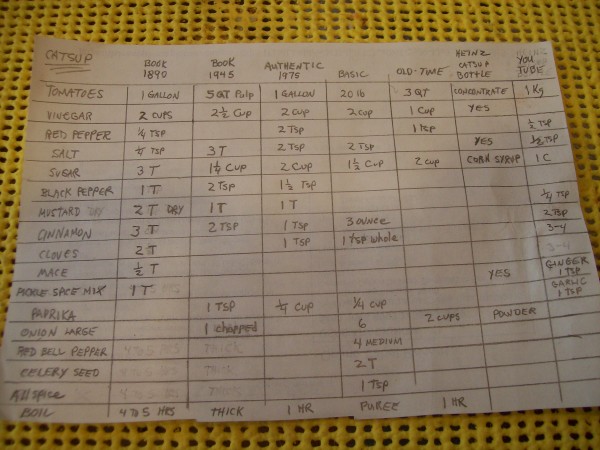 CATSUP BOOK 1890 BOOK 1945 AUTHENTIC 1975 BASIC OLD-TIME HEINZ CATSUP BOTTLE YOU TUBE
TOMATOES 1 GALLON 5 QT Pulp 1 GALLON 20 lb 3 QT CONCENTRATE 1 Kg
VINEGAR 2 CUPS 2 1/2 Cup 2 Cup 2 Cup 1 Cup YES
RED PEPPER 1/4 TSP 2 TSP 1 TSP 1/2 TSP
SALT TSP 3 T 2 TSP 2 TSP YES 1/2 TSP
SUGAR 3 T 1 1/4 Cup 2 Cup 1 1/2 Cup 2 Cup CORN SYRUP 1 C
BLACK PEPPER 1 T 2 TSP 1 1/2 TSP
MUSTARD 2 T DRY 1 T 1 T 1/4 TSP
CINNAMON 3 T 2 TSP 1 TSP 3 OUNCE 2 TSP
CLOVES 2 T 1 TSP 1 TSP whole 3-4
MACE 1/2 T 3-4
PICKLE SPICE MIX 1 T YES GINGER 1 TSP
PAPRIKA 1 TSP 1/4 CUP 1/4 CUP GARLIC 1 TSP
ONION LARGE 1 chopped 6 2 CUPS POWDER
RED BELL PEPPER 4 MEDIUM
CELERY SEED 2 T
Allspice 1 TSP
BOIL 4 TO 5 HRS THICK 1 HR PUREE 1 HR